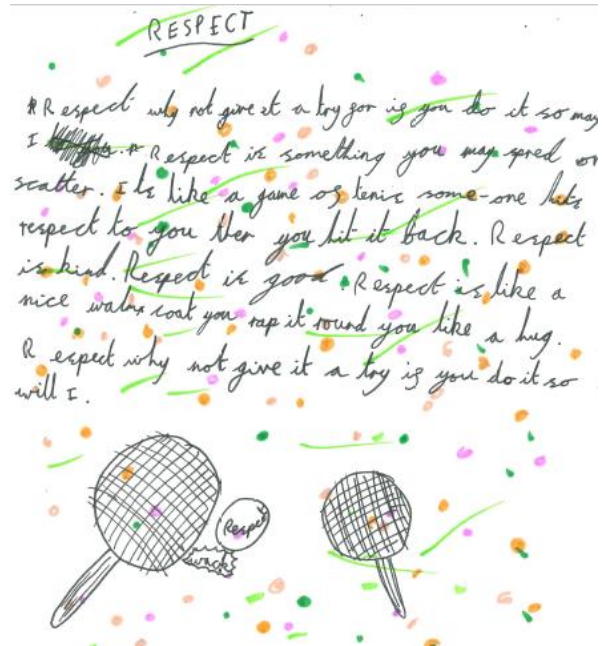 RESPECT
Respect why not give it a try for if you do it so may
I Respect is something you may spred or
scatter. Its like a game of tenis some-one hits
respect to you then you hit it back. Respect
is kind. Respect is good. Respect is like a
nice warm coat you rap it round you like a hug.
Respect why not give it a try if you do it so
will I.
Respect
wack